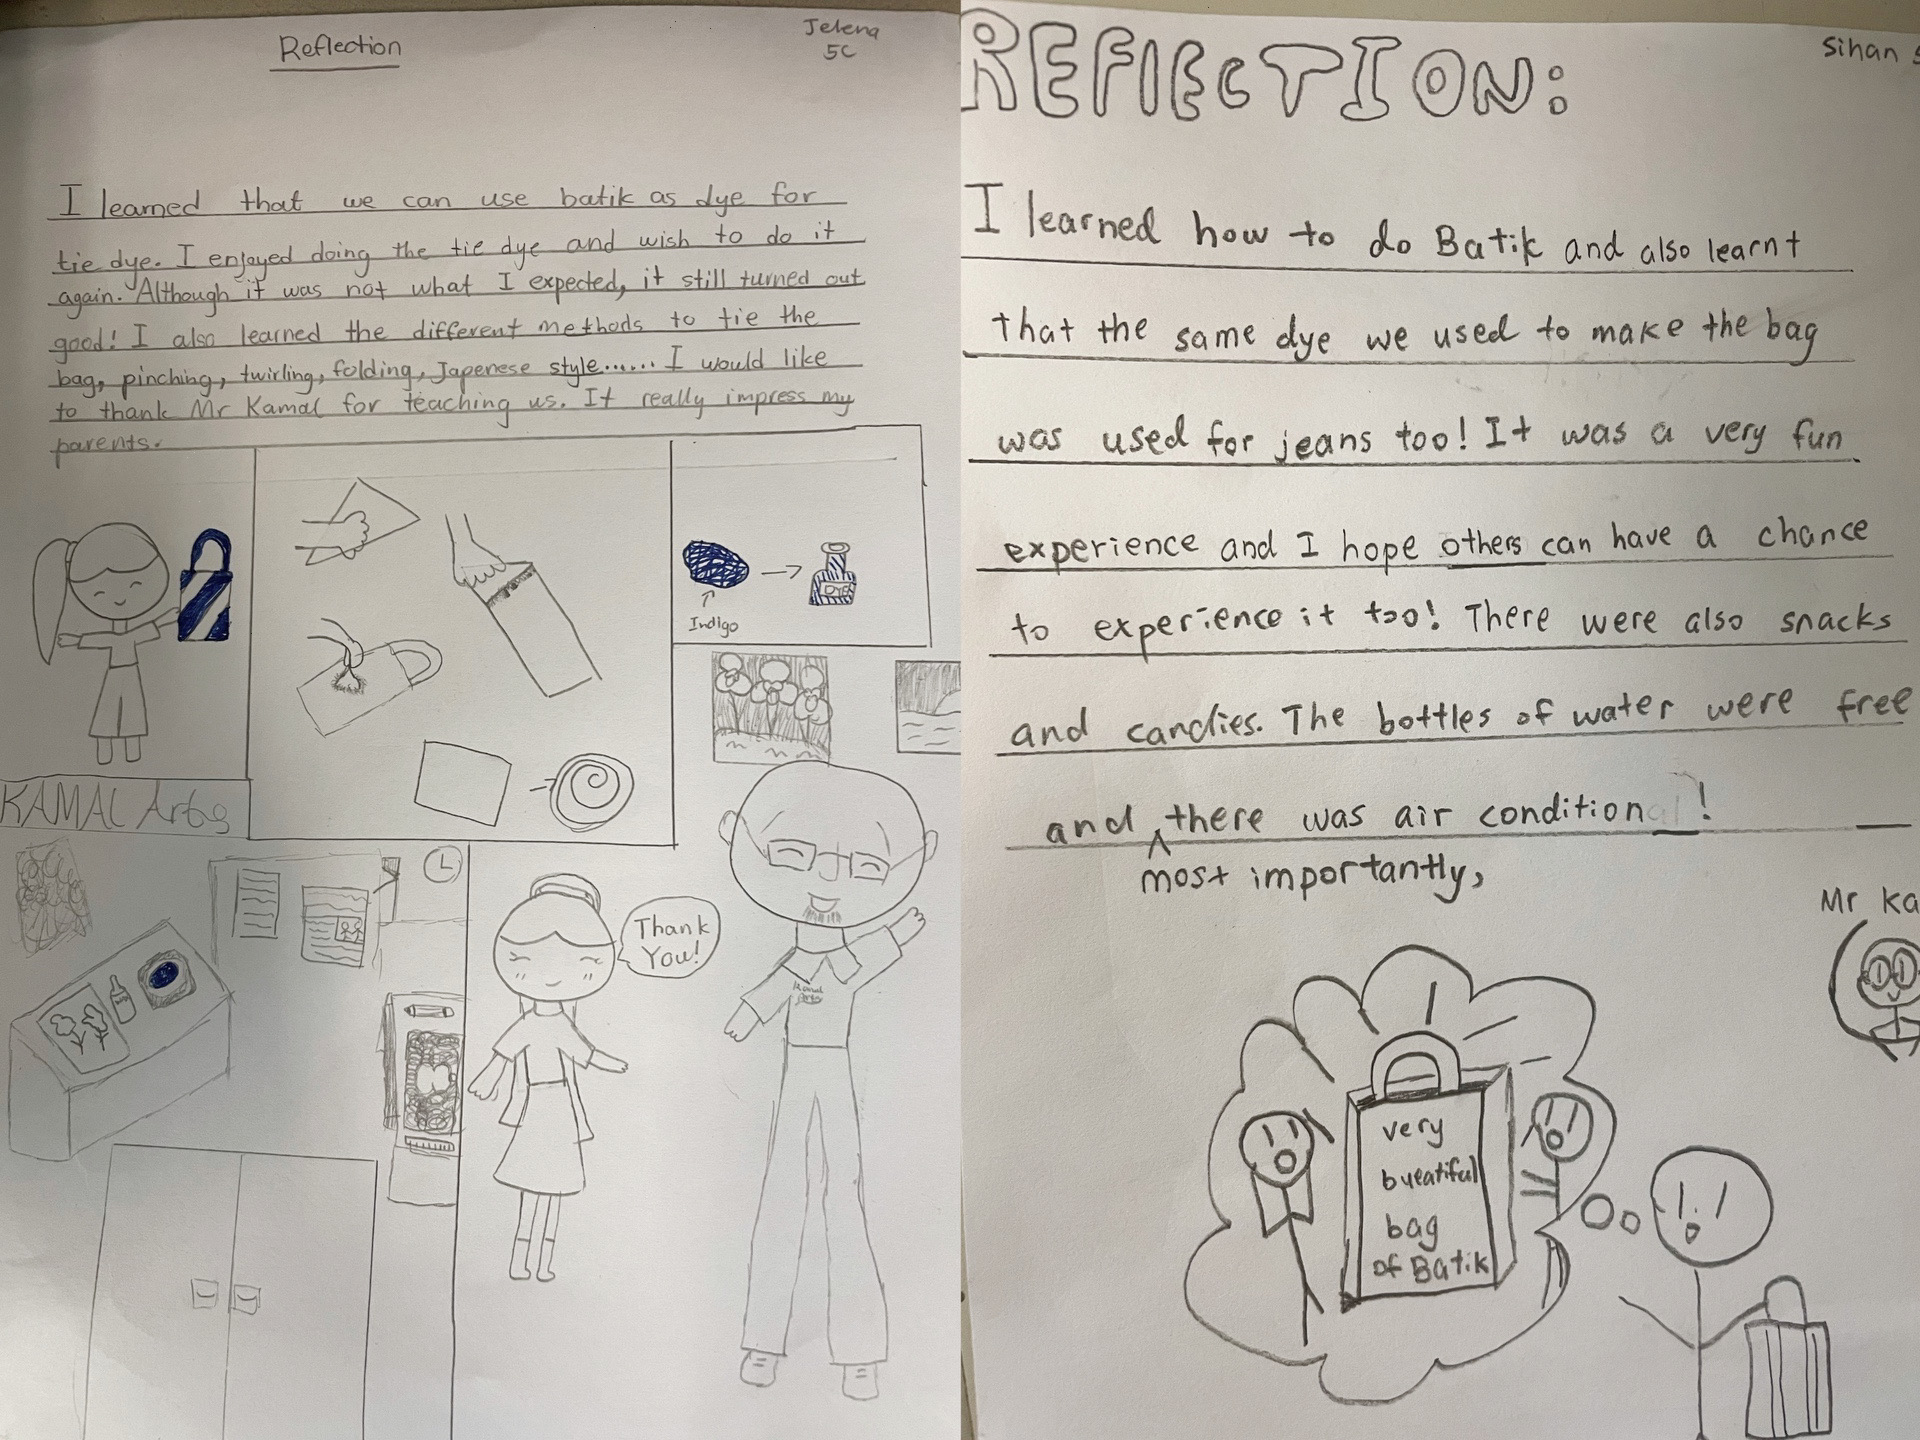 Reflection
Jelena
5C
I learned that we can use batik as dye for
tie dye. I enjoyed doing the tie dye and wish to do it
again. Although it was not what I expected, it still turned out
good! I also learned the different methods to tie the
bag, pinching, twirling, folding, Japenese style...... I would like
to thank Mr Kamal for teaching us. It really impress my
parents.
Indigo
DYE
KAMAL Arts
Thank
You!
Kamal
Arts
REFlEcTION:
Sihan 5
I learned how to do Batik and also learnt
that the same dye we used to make the bag
was used for jeans too! It was a very fun
experience and I hope others can have a chance
to experience it too! There were also snacks
and candies. The bottles of water were free
and there was air condition !
most importantly,
Mr Ka
very
bueatiful
bag
of Batik